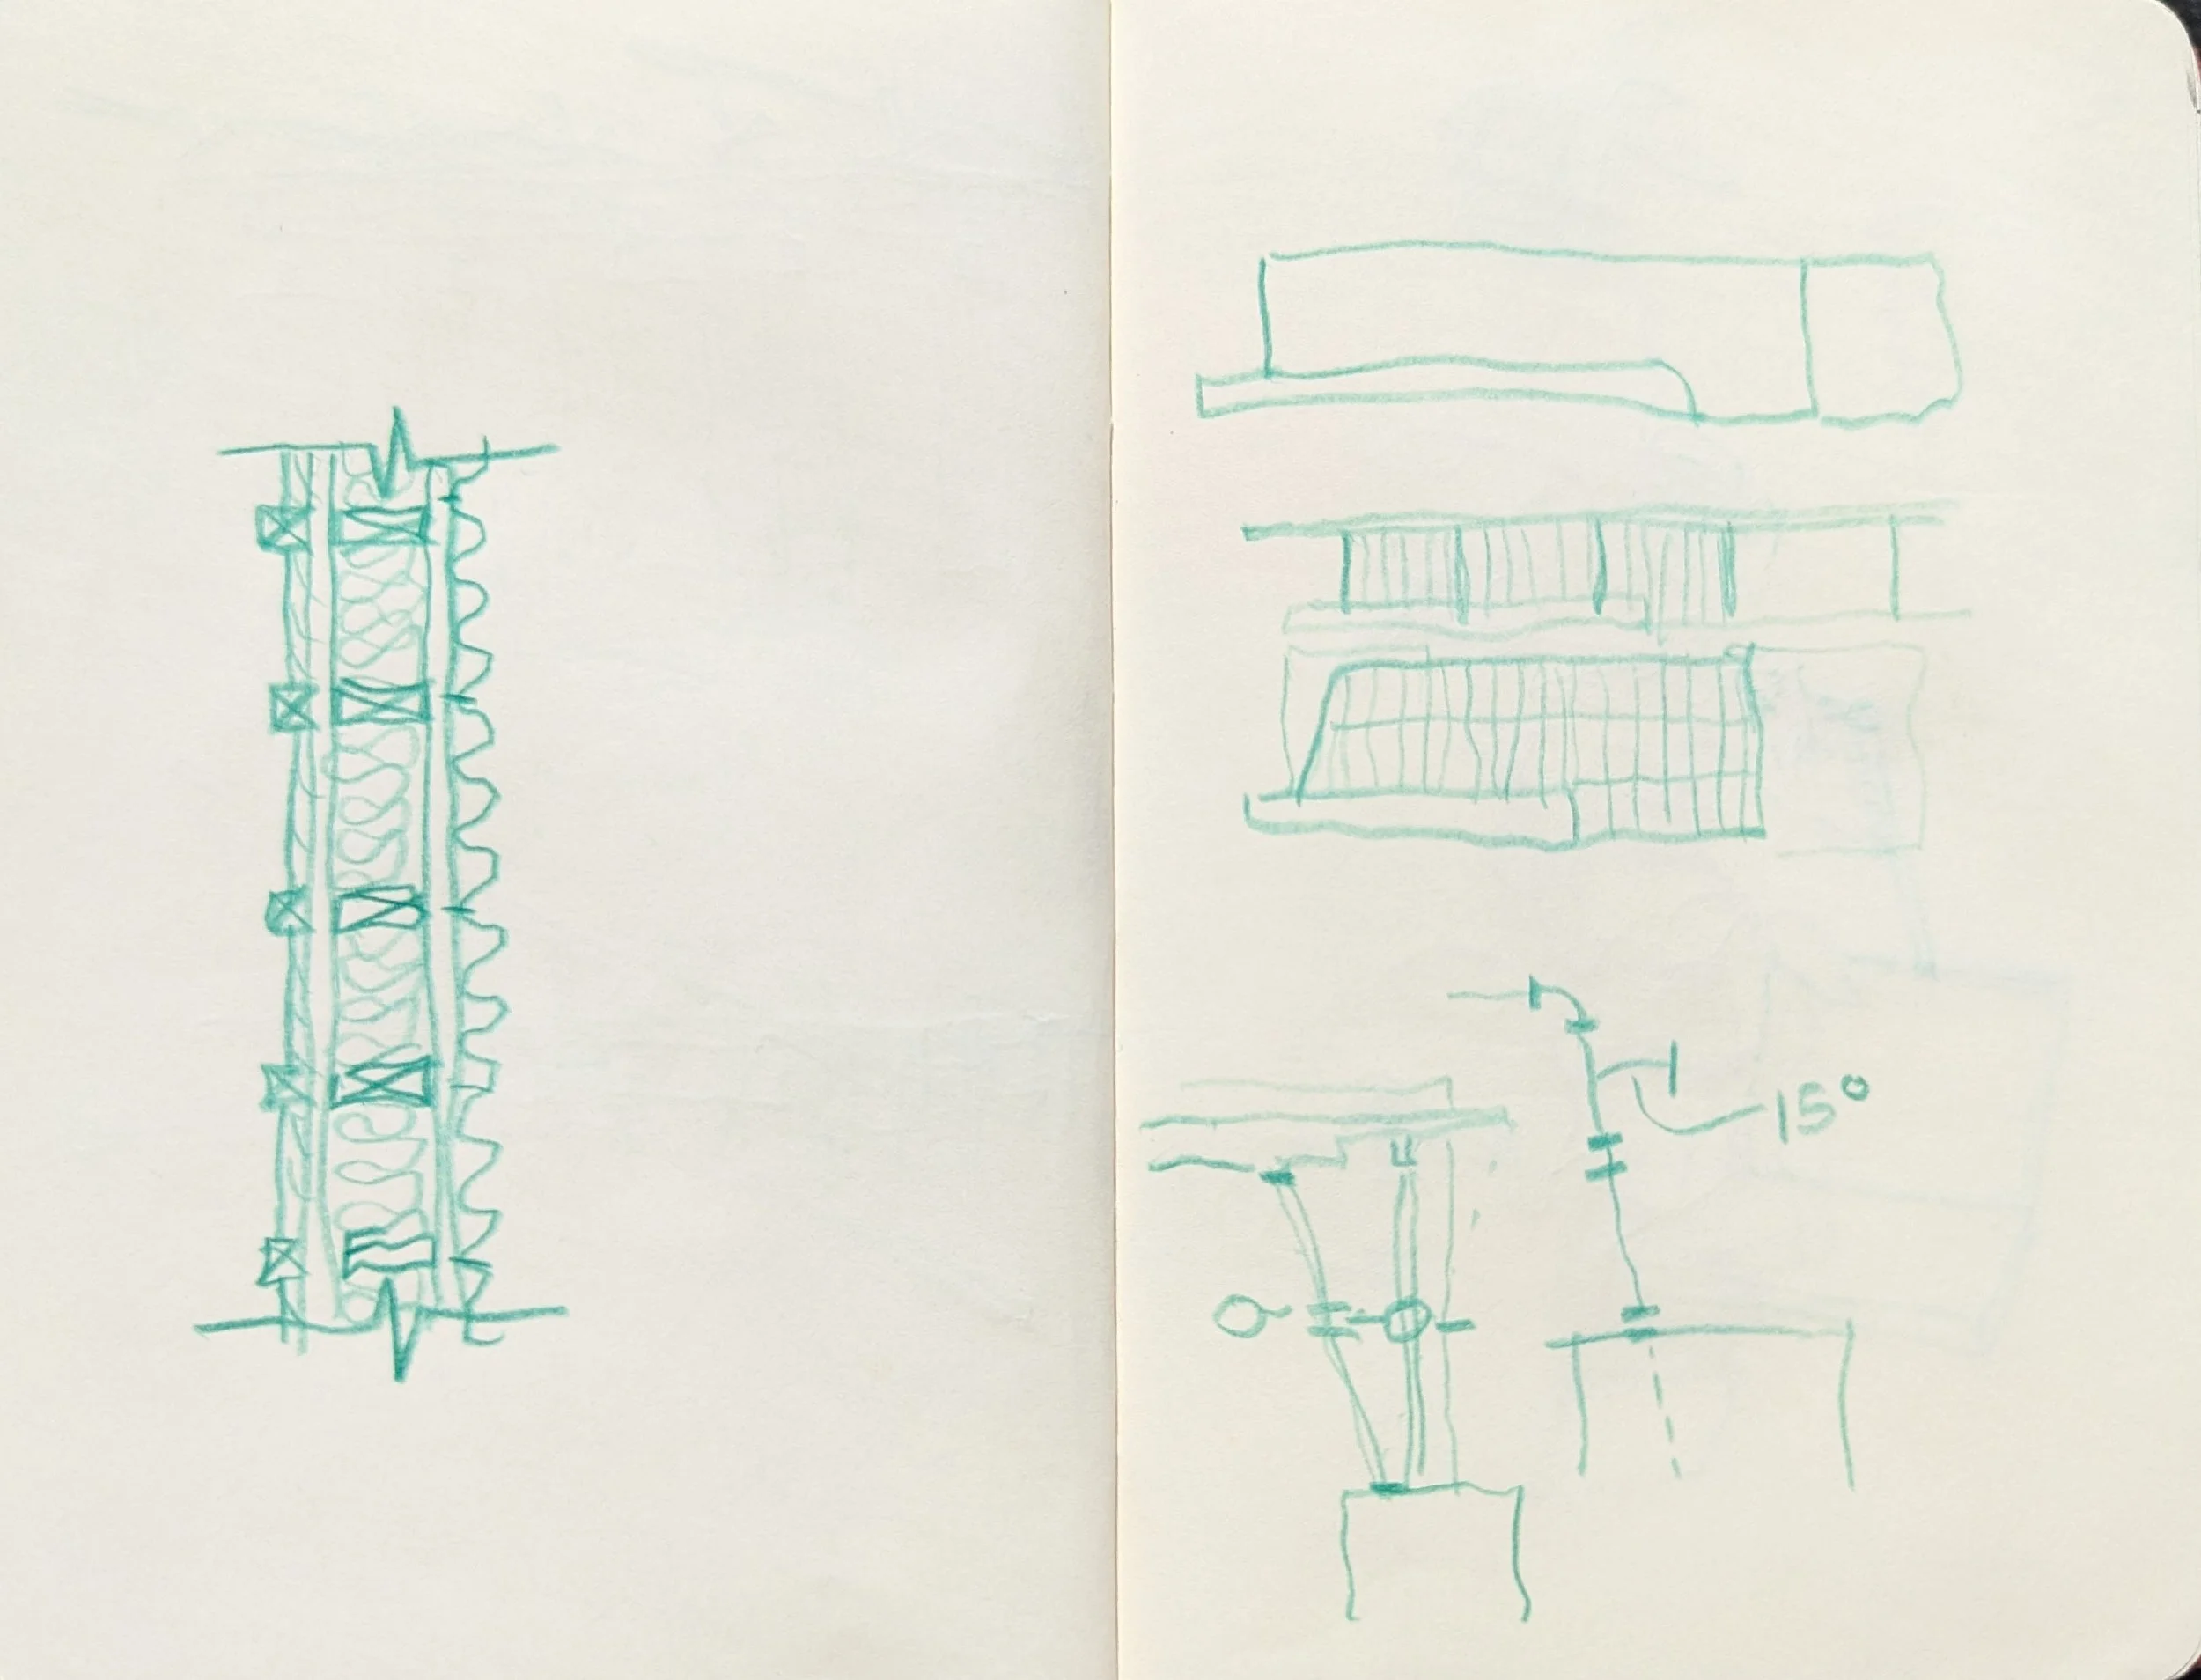 15°